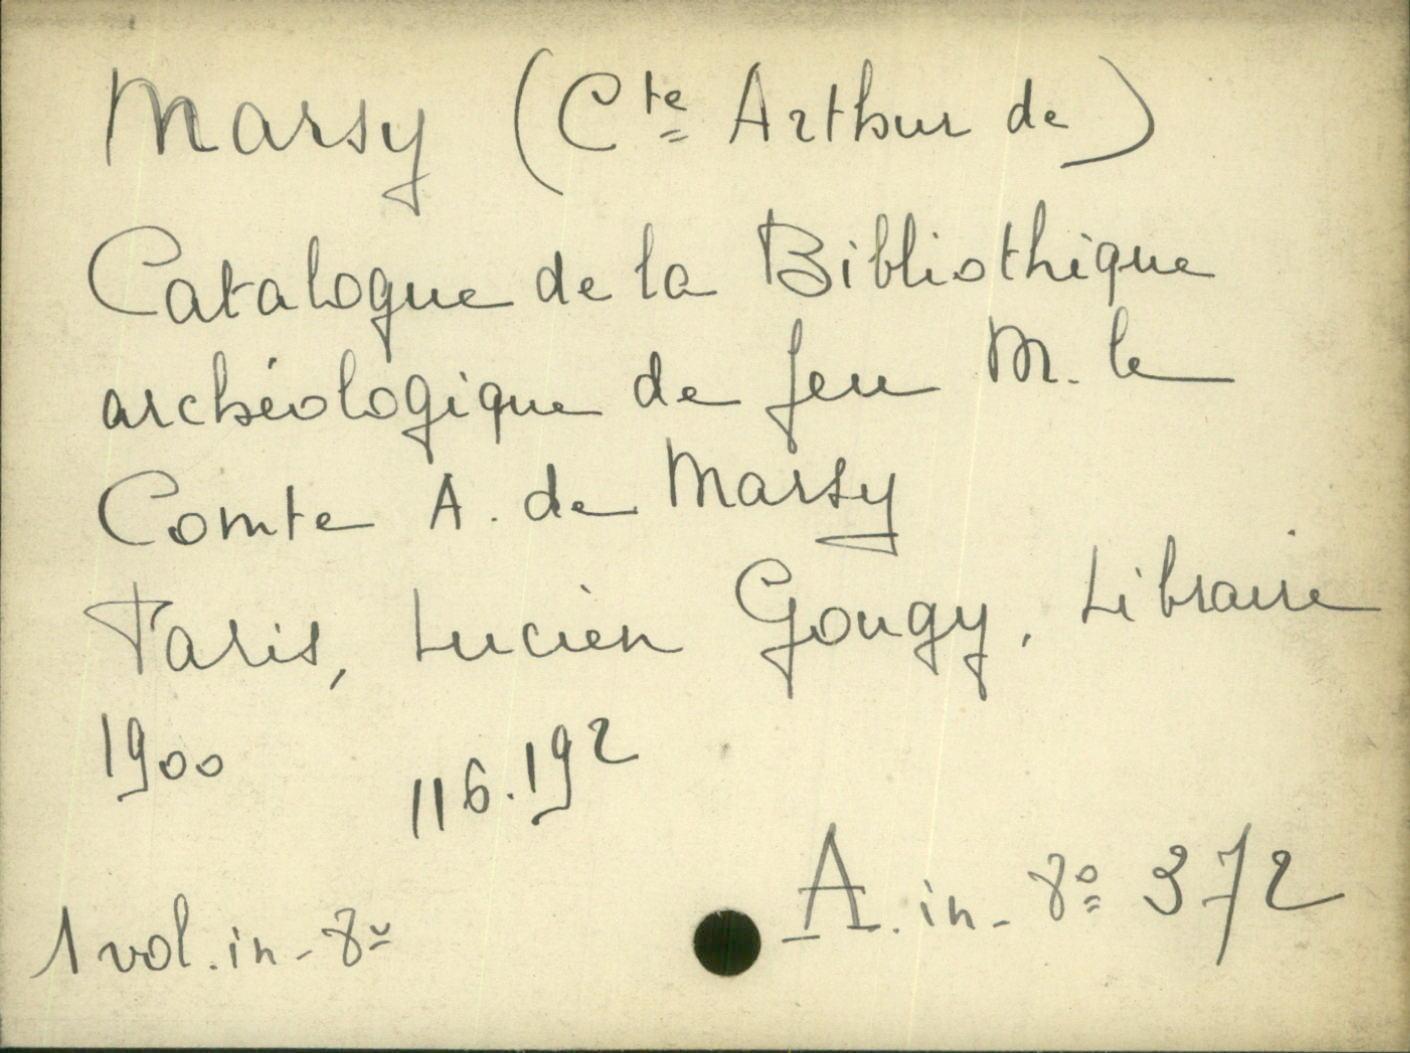 Marsy (Cte Arthur de)
Catalogue de la Bibliothèque
archéologique de feu M. le
Comte A. de Marsy
Paris, Lucien Gougy, Libraire
1900 116.192
1 vol. in-8º A. in-8º 372